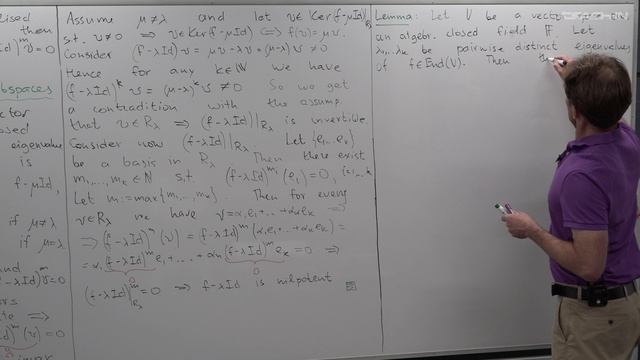 then
Id)^m v = 0
subspaces
vector
closed
eigenvalue
is
f-μId,
if μ≠λ
if μ=λ
and
-λId)^m v=0
(v)=0
Assume μ≠λ and let v∈Ker(f-μId)
s.t. v≠0 ⇒ v∈Ker(f-μId) ⇔ f(v)=μv.
Consider (f-λId)v = μv-λv = (μ-λ)v ≠ 0
Hence for any k∈ℕ we have
(f-λId)^k v = (μ-λ)^k v ≠ 0 So we get
a contradiction with the assump
that v∈R_λ ⇒ (f-λId)|_{R_λ} is invertible.
Consider now (f-λId)|_{R_λ} Let {e_1...e_k}
be a basis in R_λ. Then there exist
m_1,...,m_k∈ℕ s.t. (f-λId)^{m_i}(e_i)=0, i=1,...,k
Let m:=max{m_1,...,m_k}. Then for every
v∈R_λ we have v=α_1e_1+...+α_ke_k ⇒
⇒ (f-λId)^m(v) = (f-λId)^m(α_1e_1+...+α_ke_k) =
=α_1(f-λId)^m e_1+...+α_k(f-λId)^m e_k=0 ⇒
0 0
(f-λId)^m|_{R_λ}=0 ⇒ f-λId is nilpotent
Lemma: Let V be a vector
an algebr. closed field 𝔽. Let
λ_1,...λ_k be pairwise distinct eigenvalues
of f∈End(V). Then the